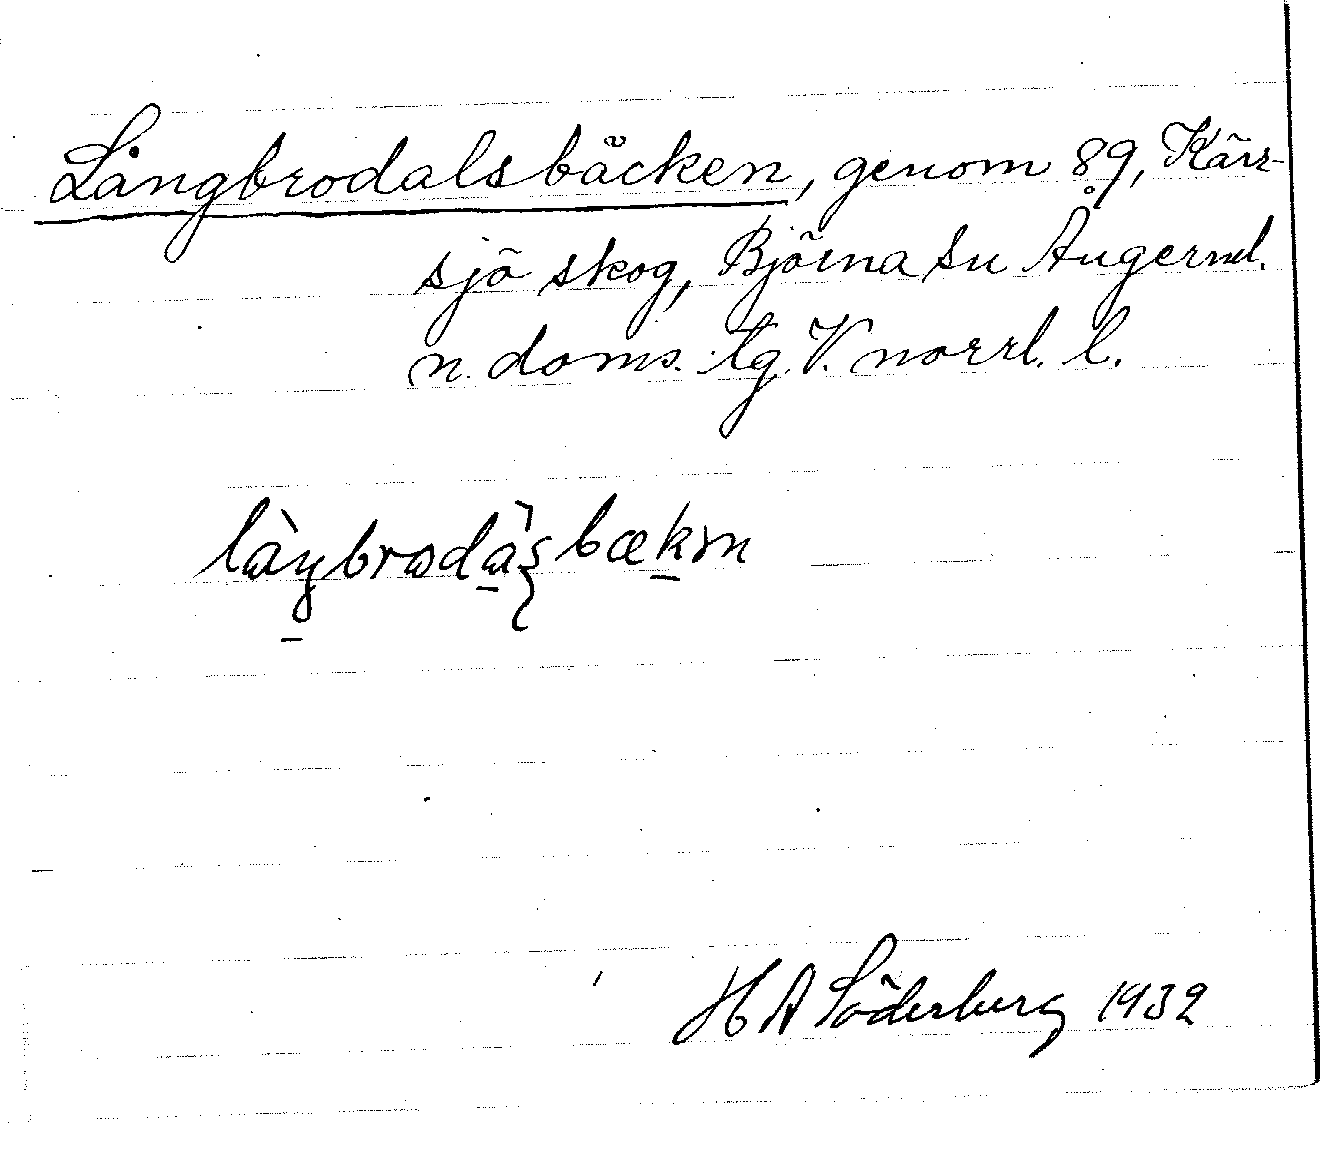 Långbrodalsbäcken, genom 89, Kärr-
sjö skog, Björna sn Ångerml.
n. doms. tg. V. norrl. l.
làŋbrodàʂbækm̥
H A Söderberg 1932